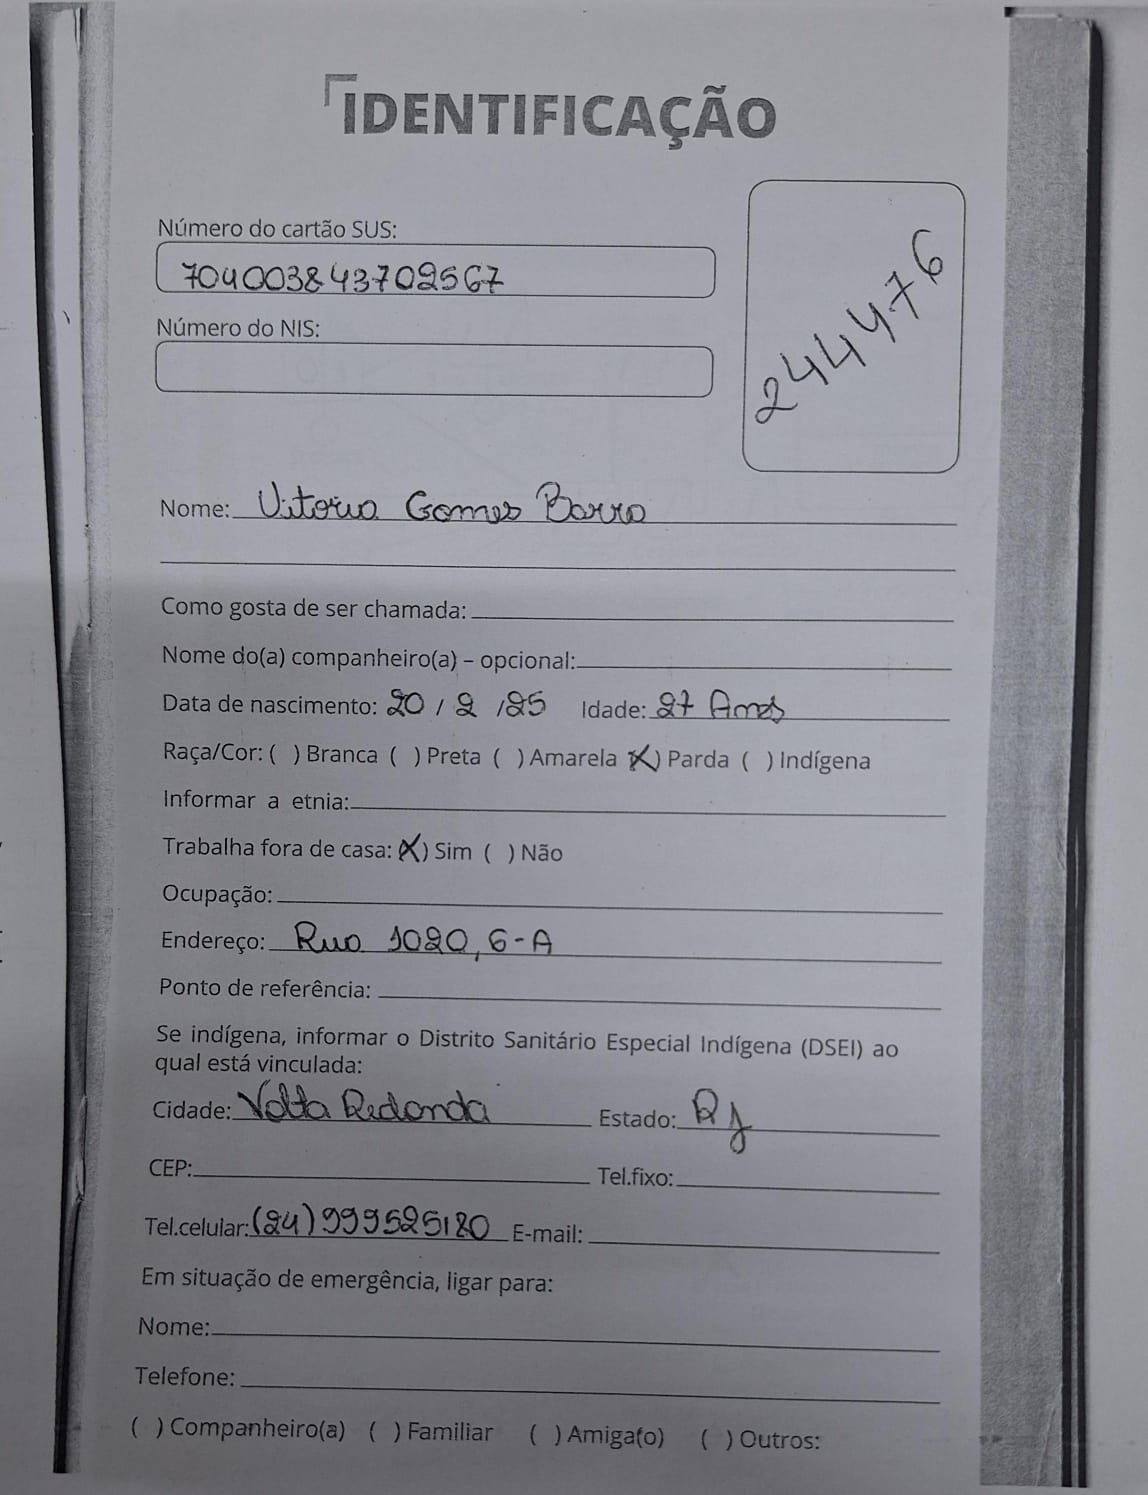 IDENTIFICAÇÃO
Número do cartão SUS:
704003843702567
Número do NIS:
2444476
Nome: Vitoria Gomes Barro
Como gosta de ser chamada:
Nome do(a) companheiro(a) – opcional:
Data de nascimento: 20 / 2 / 25 Idade: 27 Anos
Raça/Cor: ( ) Branca ( ) Preta ( ) Amarela (X) Parda ( ) Indígena
Informar a etnia:
Trabalha fora de casa: (X) Sim ( ) Não
Ocupação:
Endereço: Rua 1020, 6-A
Ponto de referência:
Se indígena, informar o Distrito Sanitário Especial Indígena (DSEI) ao
qual está vinculada:
Cidade: Volta Redonda Estado: RJ
CEP: Tel.fixo:
Tel.celular: (24) 999525120 E-mail:
Em situação de emergência, ligar para:
Nome:
Telefone:
( ) Companheiro(a) ( ) Familiar ( ) Amiga(o) ( ) Outros: